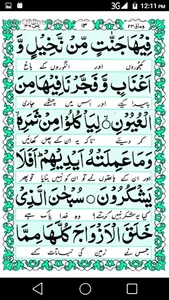 3G 12:11 PM
۱۳
فِيْهَا جَنّٰتٍ مِّنْ نَّخِيْلٍ وَّ
کھجوروں اور انگوروں کے باغ
اَعْنَابٍ وَّفَجَّرْنَا فِيْهَا مِنَ
پیدا کیے اور اس میں چشمے جاری
الْعُيُوْنِ ۙ لِيَاْكُلُوْا مِنْ ثَمَرِهٖ ۙ
کر دیے تاکہ یہ ان کے پھل کھائیں
وَمَا عَمِلَتْهُ اَيْدِيْهِمْ ؕ اَفَلَا
اور ان کے ہاتھوں نے تو ان کو نہیں بنایا
يَشْكُرُوْنَ ۞ سُبْحٰنَ الَّذِيْ
یہ شکر کیوں نہیں کرتے؟ وہ خدا پاک ہے
خَلَقَ الْاَزْوَاجَ كُلَّهَا مِمَّا
جس نے زمین کی نباتات کے